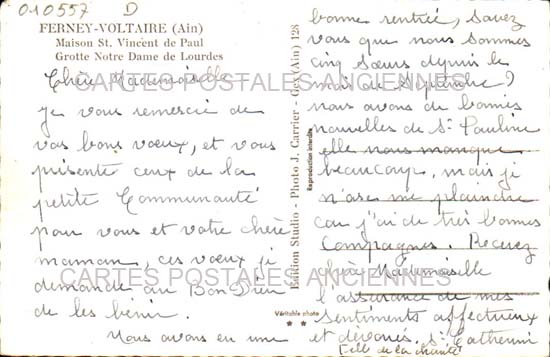 010557 D
FERNEY-VOLTAIRE (Ain)
Maison St. Vincent de Paul
Grotte Notre Dame de Lourdes
Chère Mademoiselle
je vous remercie de
vos bons vœux, et vous
présente ceux de la
petite Communauté
pour vous et votre chère
maman, ces vœux je
demande au Bon Dieu
de les bénir.
Nous avons eu une
Edition Studio - Photo J. Carrier - Gex (Ain) 128
Reproduction interdite
Véritable photo
bonne rentrée, savez
vous que nous sommes
cinq sœurs depuis le
mois de Septembre?
nous avons de bonnes
nouvelles de Sr Pauline
elle nous manque
beaucoup, mais je
n'ose me plaindre
car j'ai de très bonnes
Compagnes. Recevez
chère Mademoiselle
l'assurance de mes
sentiments affectueux
et dévoués. Sr Catherine
Fille de la charité
CARTES POSTALES ANCIENNES
CARTES POSTALES ANCIENNES